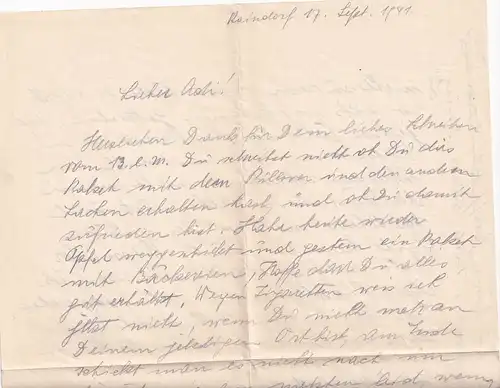 Raindorf 17. Sept. 1941
Lieber Adi!
Herzlichen Dank für Dein liebes Schreiben
vom 13. l. M. Du schreibst nicht ob Du das
Paket mit dem Pullover und den anderen
Sachen erhalten hast und ob Du damit
zufrieden bist. Habe heute wieder
Äpfel weggeschickt und gestern ein Paket
mit Bäckereien, Hoffe dass Du alles
gut erhältst, Wegen Zigaretten weis ich
jetzt nicht, wenn Du nicht mehr an
Deinem jetzigen Ort bist, am Ende
schickt man es nicht nach
wenn